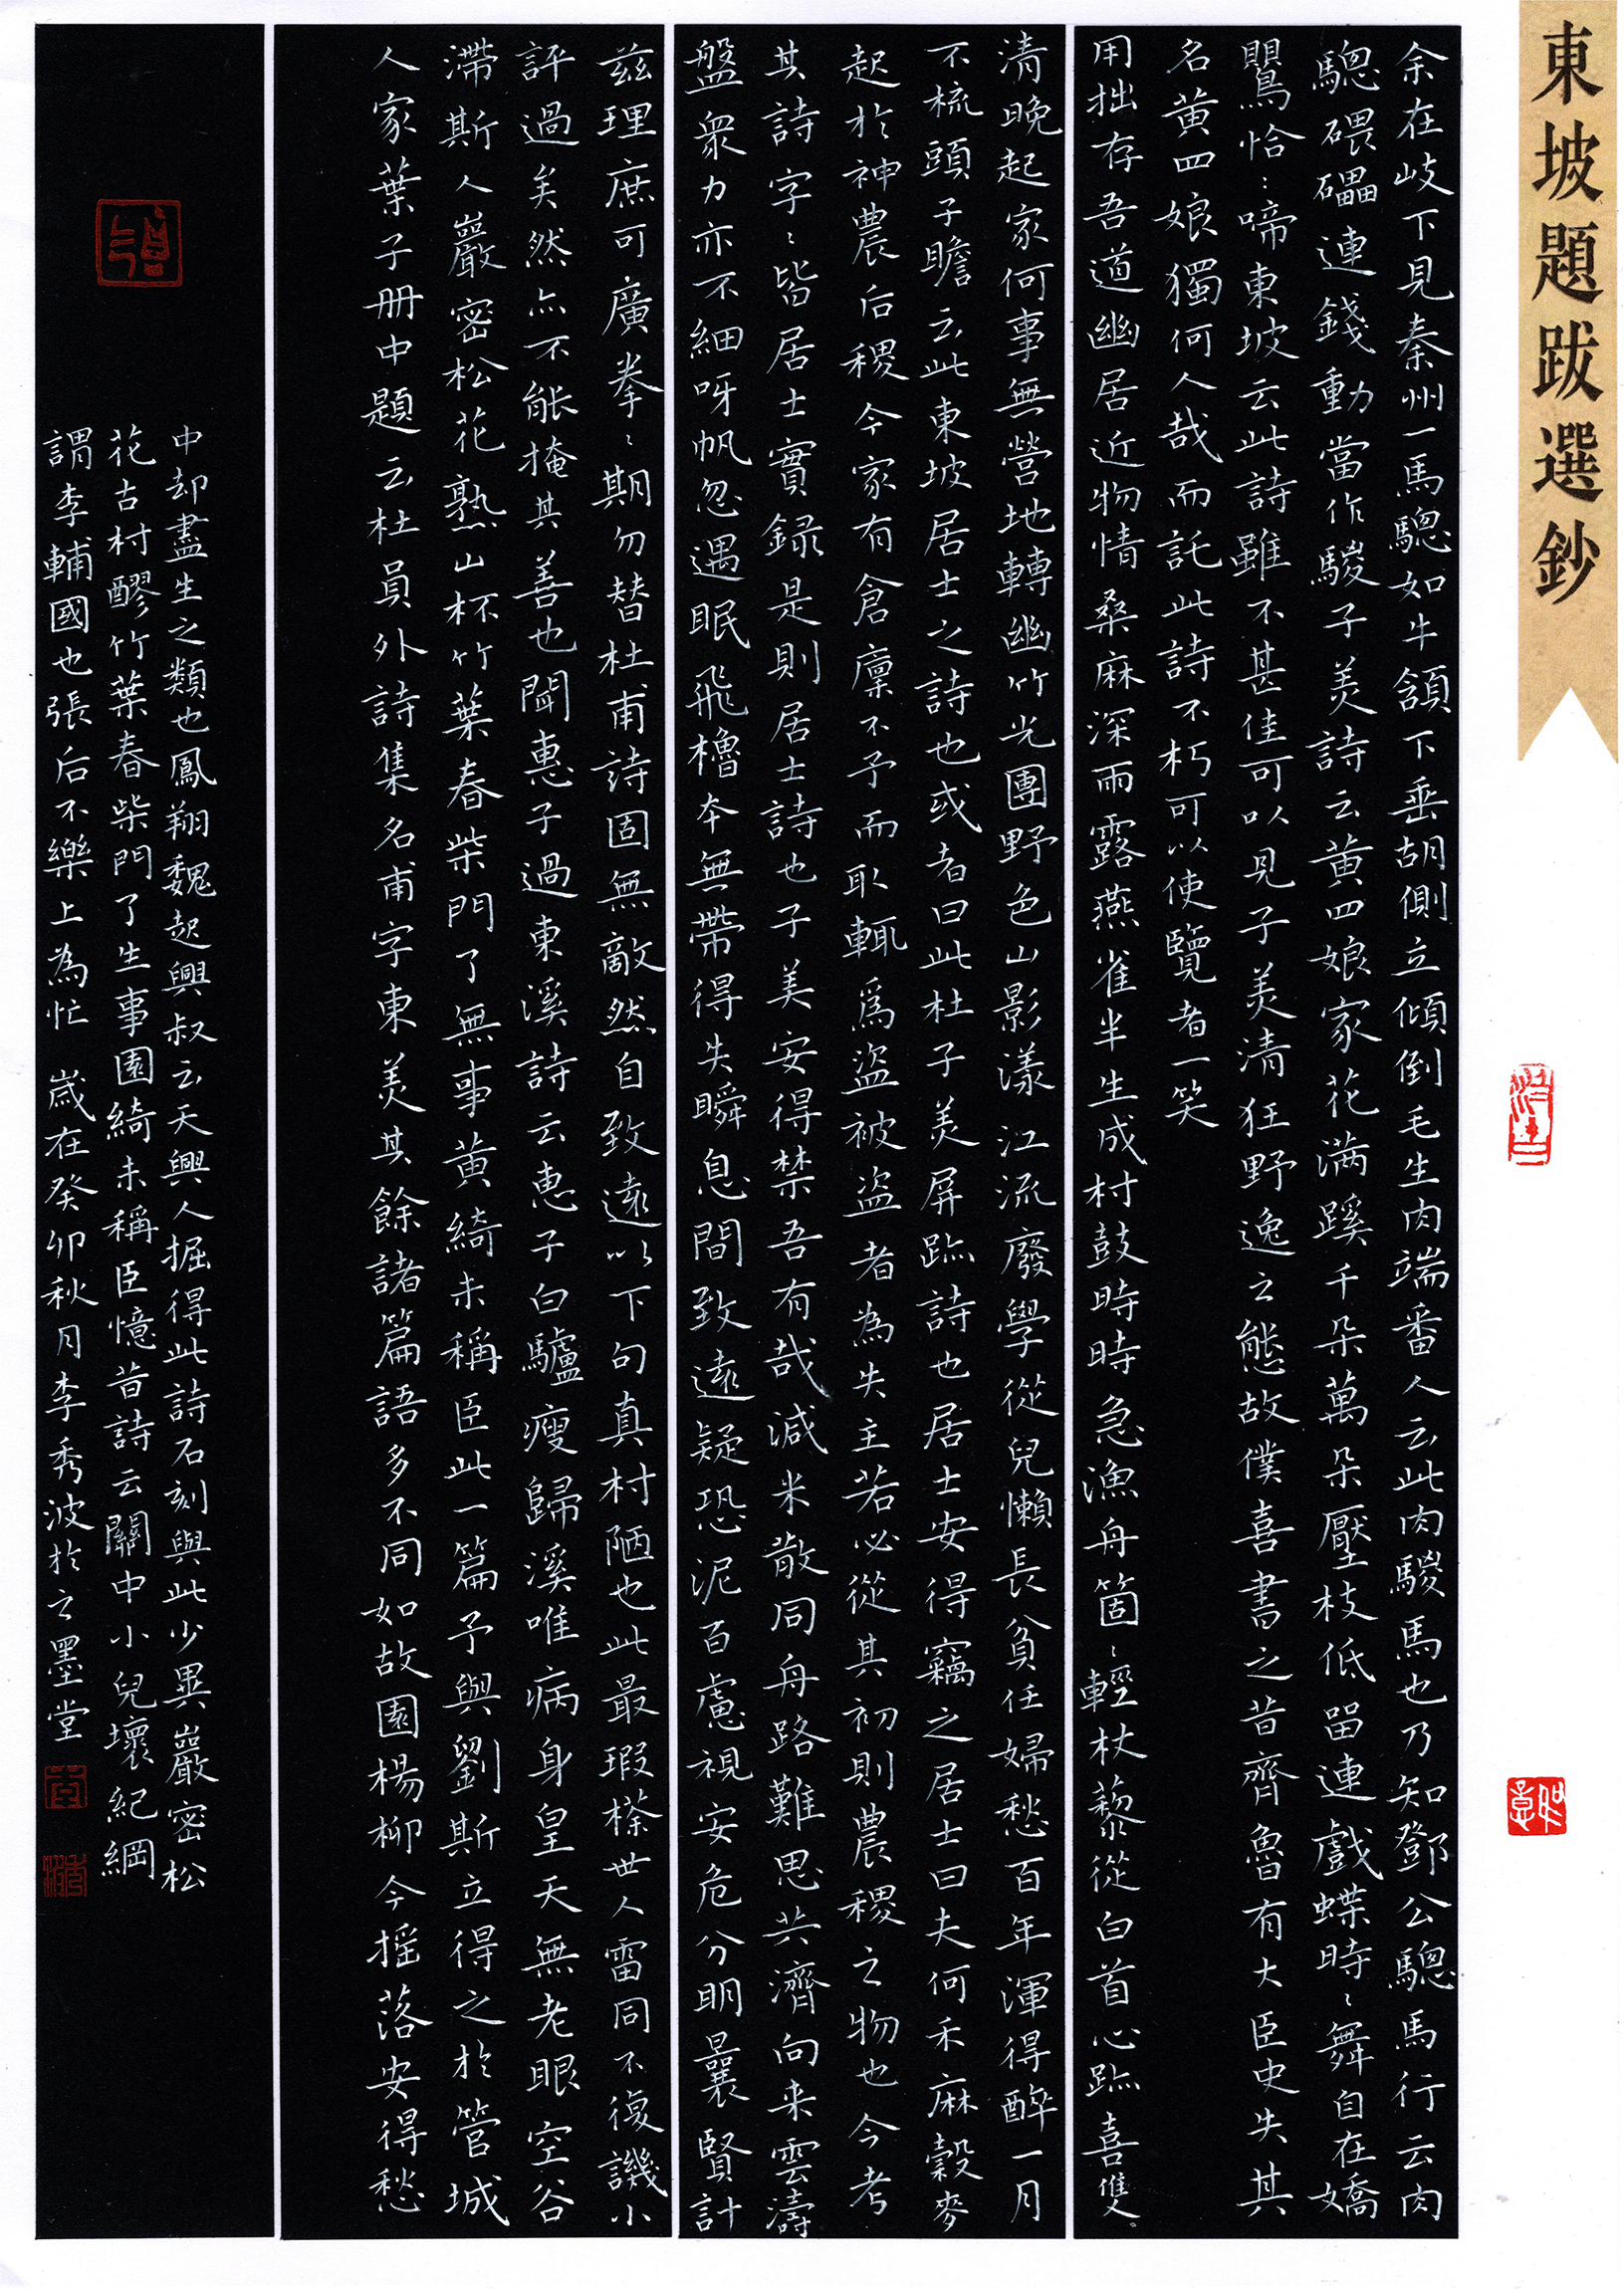 東坡題跋選鈔
余在岐下見秦州一馬驄如牛頷下垂胡側立傾倒毛生肉端番人云此肉騣馬也乃知鄧公驄馬行云肉
驄碨礧連錢動當作騣子美詩云黄四娘家花滿蹊千朵萬朵壓枝低留連戲蝶時〻舞自在嬌
鸎恰〻啼東坡云此詩雖不甚佳可以見子美清狂野逸之態故僕喜書之昔齊魯有大臣史失其
名黄四娘獨何人哉而託此詩不朽可以使覽者一笑
用拙存吾道幽居近物情桑麻深雨露燕雀半生成村鼓時時急漁舟箇〻輕杖藜從白首心跡喜雙〻
清晚起家何事無營地轉幽竹光團野色山影漾江流廢學從兒懶長貧任婦愁百年渾得醉一月
不梳頭子瞻云此東坡居士之詩也或者曰此杜子美屏跡詩也居士安得竊之居士曰夫何禾麻穀麥
起於神農后稷今家有倉廩不予而取輒爲盗被盗者為失主若必從其初則農稷之物也今考
其詩字〻皆居士實録是則居士詩也子美安得禁吾有哉減米散同舟路難思共濟向来雲濤
盤衆力亦不細呀帆忽遇眠飛櫓本無蔕得失瞬息間致遠疑恐泥百慮視安危分明曩賢計
兹理庶可廣拳〻期勿替杜甫詩固無敵然自致遠以下句真村陋也此最瑕櫟世人雷同不復譏小
評過矣然亦不能掩其善也聞惠子過東溪詩云惠子白驢瘦歸溪唯病身皇天無老眼空谷
滯斯人巖密松花熟山杯竹葉春柴門了無事黄綺未稱臣此一篇予與劉斯立得之於管城
人家葉子册中題云杜員外詩集名甫字東美其餘諸篇語多不同如故園楊柳今摇落安得愁
中却盡生之類也鳳翔魏起興叔云天興人掘得此詩石刻與此少異巖密松
花古村醪竹葉春柴門了生事園綺未稱臣憶昔詩云關中小兒壞紀綱
謂李輔國也張后不樂上為忙 歲在癸卯秋月李秀波於云墨堂